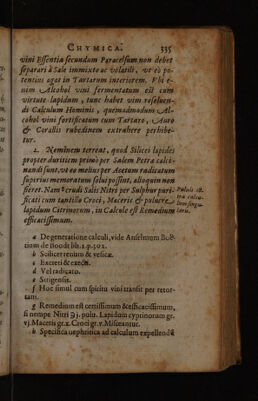 CHYMICA. 335
vini Essentia secundum Paracelsum non debet
separari à Sale immixto ac volatili, vt eò po-
tentius agat in Tartarum interiorem. Vbi e-
nim Alcohol vini fermentatum est cum
virtute lapidum, tunc habet vim resoluen-
di Calculum Hominis, quemadmodum Al-
cohol vini fortificatum cum Tartaro, Auro
& Corallis rubedinem extrahere perhibe-
tur.
2. Neminem terreat, quod Silicei lapides
propter duritiem primò per Salem Petra calci-
nandi sunt, vt eo melius per Acetum radicatum
superius memoratum solui possint, alioquin non
fieret. Nam crudi Salis Nitri per Sulphur puri-
ficati cum tantillo Croci, Maceris & puluere
lapidum Citrinorum, in Calculo est Remedium
efficacissimum.
Puluis
tra calcu-
lum singu-
laris.
a De generatione calculi, vide Anselmum Boë-
tium de Boodt lib. 2. p. 502.
b Scilicet renium & vesicæ.
c Excreti & execti.
d Vel radicato.
e Strigensis.
f Huc simul cum spiritu vini transit per retor-
tam.
g Remedium est certissimum & efficacissimum,
si nempe Nitri ʒj. pulu. Lapidum cyprinorum gr.
vj. Maceris gr. x. Croci gr. v. Misceantur.
h Specifica nephritica ad calculum expellendũ